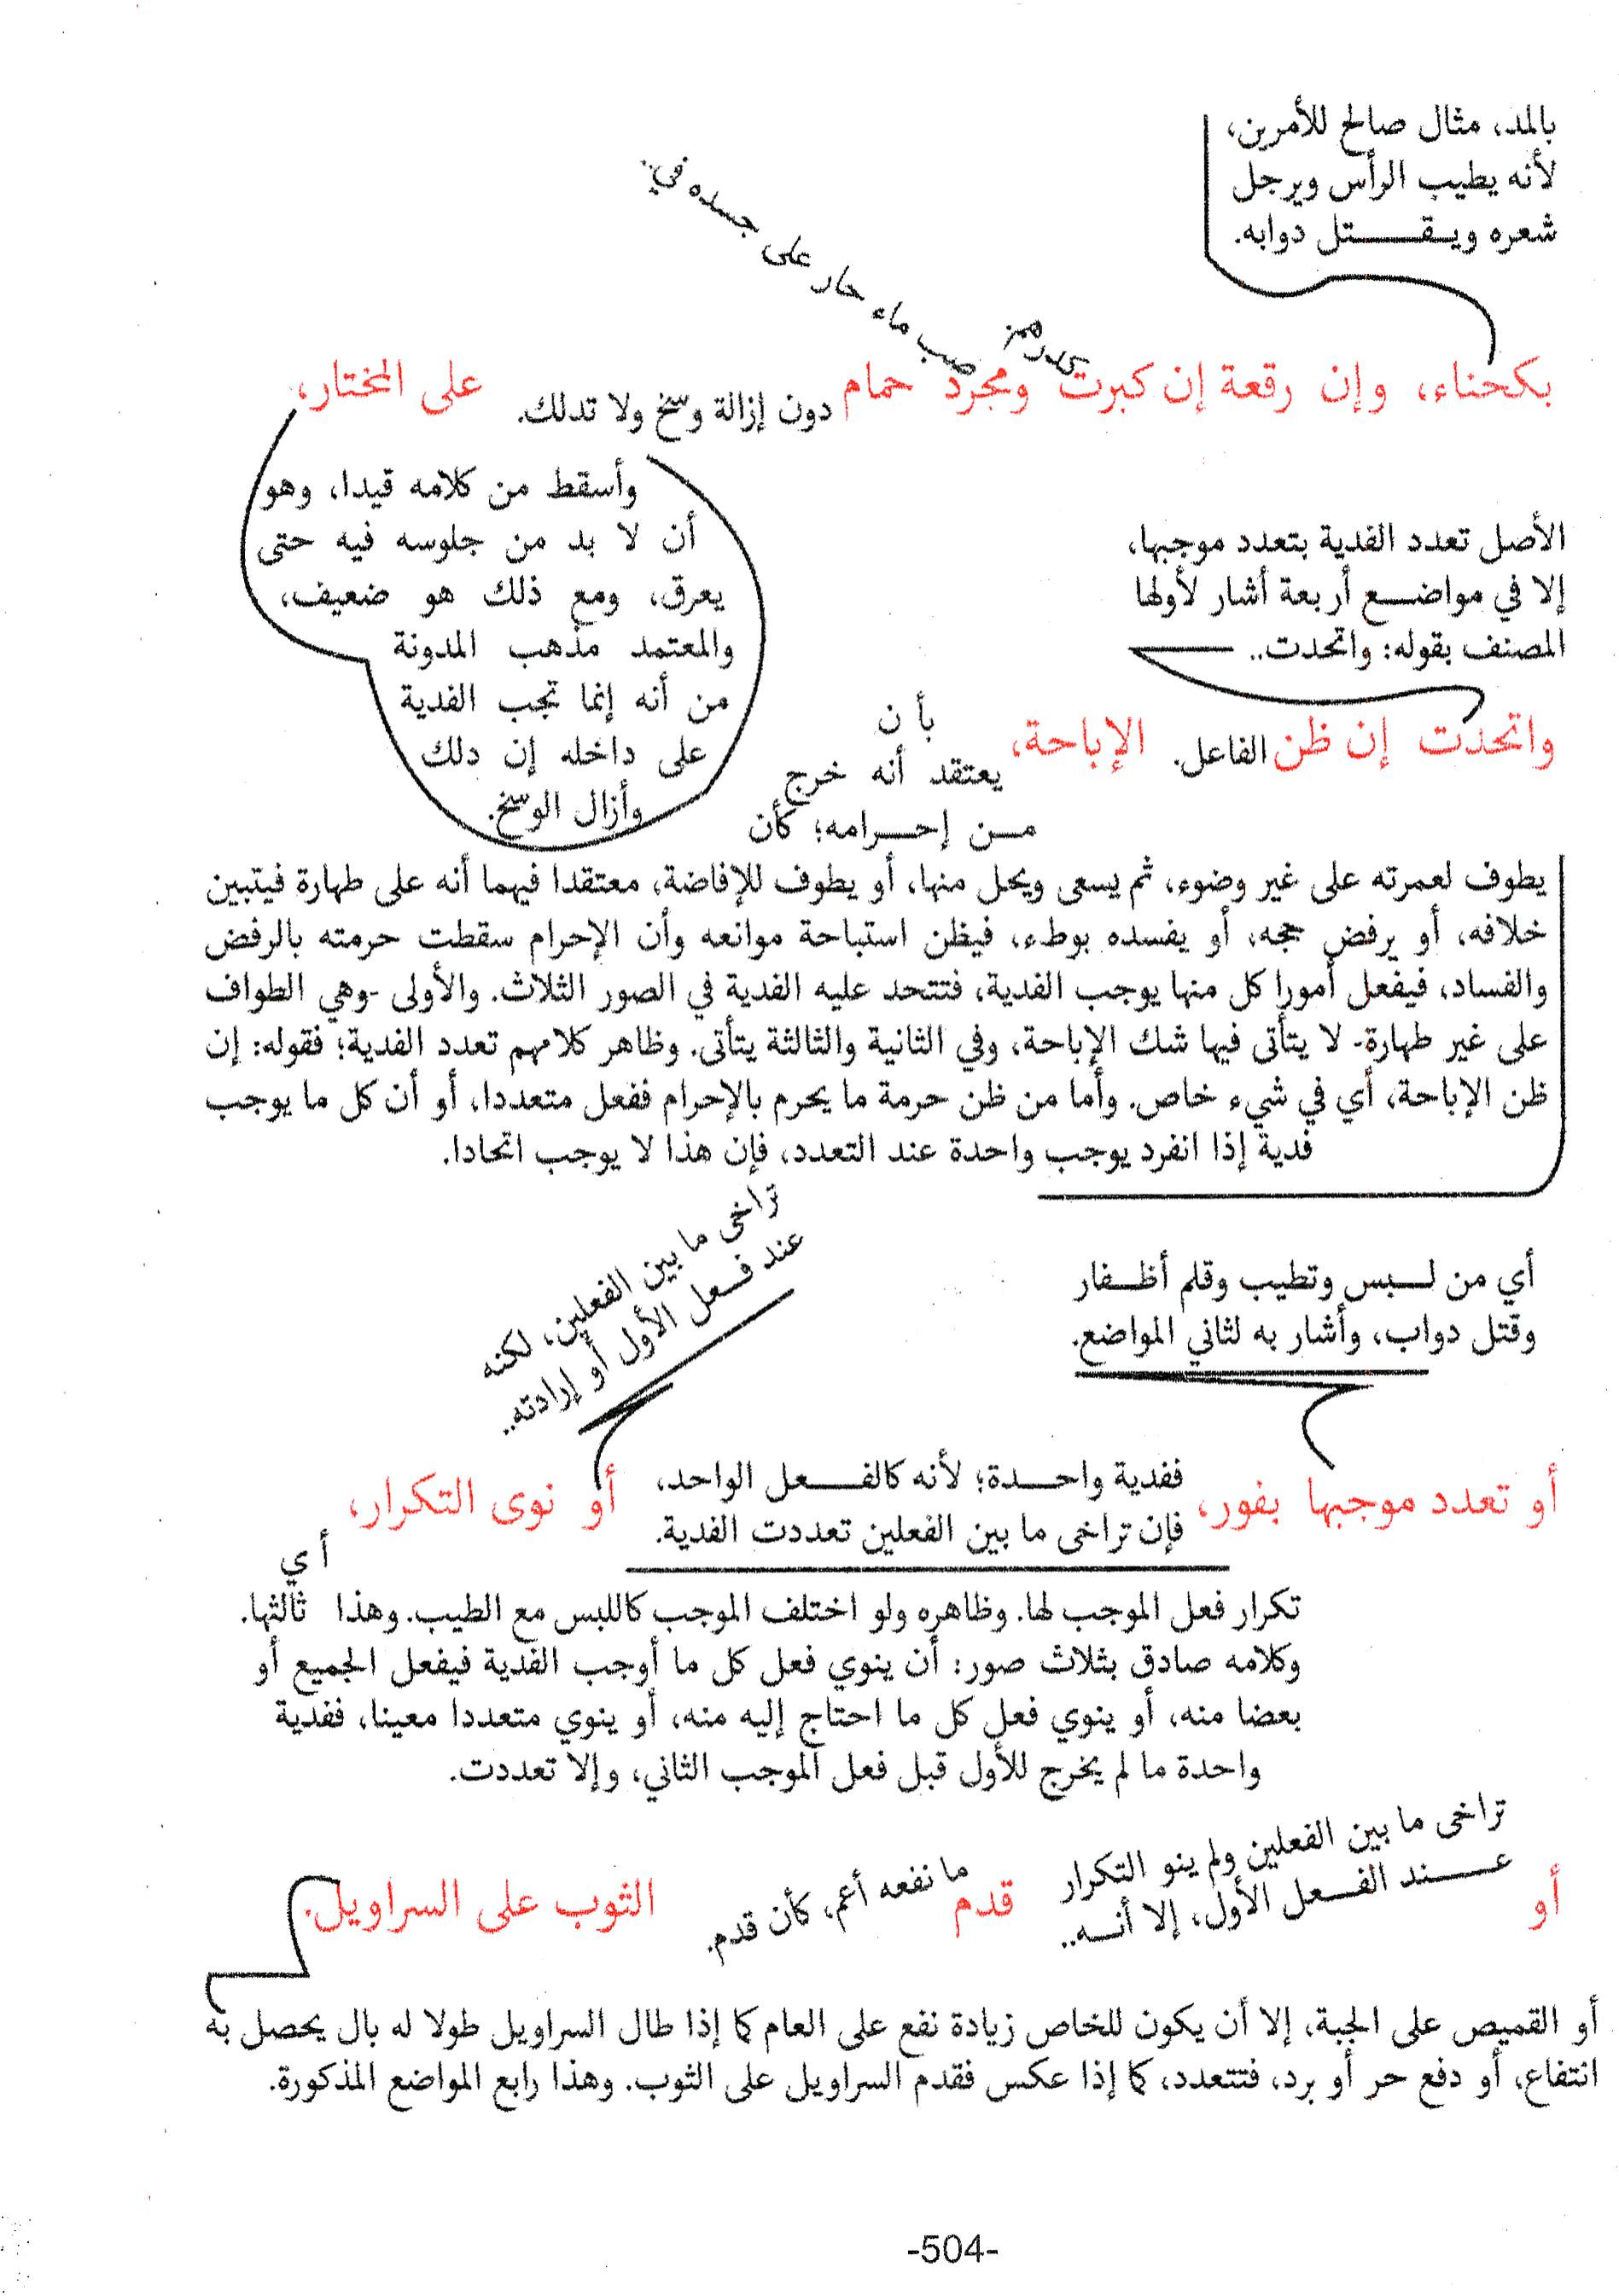 بالمد، مثال صالح للأمرين،
لأنه يطيب الرأس ويرجل
شعره ويقتل دوابه.
بكحناء، وإن رقعة إن كبرت
كدرهم.
ومجرد
صب ماء حار على جسده في..
حمام
دون إزالة وسخ ولا تدلك.
على المختار،
وأسقط من كلامه قيدا، وهو
أن لا بد من جلوسه فيه حتى
يعرق، ومع ذلك هو ضعيف،
والمعتمد مذهب المدونة
من أنه إنما تجب الفدية
على داخله إن دلك
وأزال الوسخ.
الأصل تعدد الفدية بتعدد موجبها،
إلا في مواضع أربعة أشار لأولها
المصنف بقوله: واتحدت..
واتحدت إن ظن الفاعل. الإباحة،
بأن
يعتقد أنه خرج
من إحرامه؛ كأن
يطوف لعمرته على غير وضوء، ثم يسعى ويحل منها، أو يطوف للإفاضة، معتقدا فيهما أنه على طهارة فيتبين
خلافه، أو يرفض حجه، أو يفسده بوطء، فيظن استباحة موانعه وأن الإحرام سقطت حرمته بالرفض
والفساد، فيفعل أمورا كل منها يوجب الفدية، فتتحد عليه الفدية في الصور الثلاث. والأولى -وهي الطواف
على غير طهارة- لا يتأتى فيها شك الإباحة، وفي الثانية والثالثة يتأتى. وظاهر كلامهم تعدد الفدية؛ فقوله: إن
ظن الإباحة، أي في شيء خاص. وأما من ظن حرمة ما يحرم بالإحرام ففعل متعددا، أو أن كل ما يوجب
فدية إذا انفرد يوجب واحدة عند التعدد، فإن هذا لا يوجب اتحادا.
أي من لبس وتطيب وقلم أظفار
وقتل دواب، وأشار به لثاني المواضع.
أو تعدد موجبها بفور،
ففدية واحدة؛ لأنه كالفعل الواحد،
فإن تراخى ما بين الفعلين تعددت الفدية.
أو
تراخى ما بين الفعلين، لكنه
عند فعل الأول أو إرادته..
نوى التكرار،
أي
تكرار فعل الموجب لها. وظاهره ولو اختلف الموجب كاللبس مع الطيب. وهذا ثالثها.
وكلامه صادق بثلاث صور: أن ينوي فعل كل ما أوجب الفدية فيفعل الجميع أو
بعضا منه، أو ينوي فعل كل ما احتاج إليه منه، أو ينوي متعددا معينا، ففدية
واحدة ما لم يخرج للأول قبل فعل الموجب الثاني، وإلا تعددت.
أو
تراخى ما بين الفعلين ولم ينو التكرار
عند الفعل الأول، إلا أنه..
قدم
ما نفعه أعم، كأن قدم.
الثوب على السراويل.
أو القميص على الجبة، إلا أن يكون للخاص زيادة نفع على العام كما إذا طال السراويل طولا له بال يحصل به
انتفاع، أو دفع حر أو برد، فتتعدد، كما إذا عكس فقدم السراويل على الثوب. وهذا رابع المواضع المذكورة.
-504-